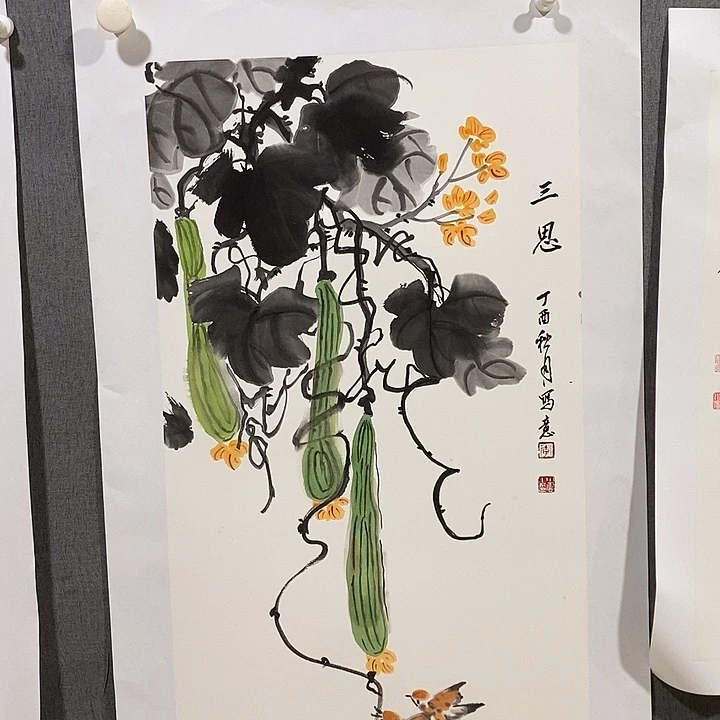 三思
丁酉秋月写意